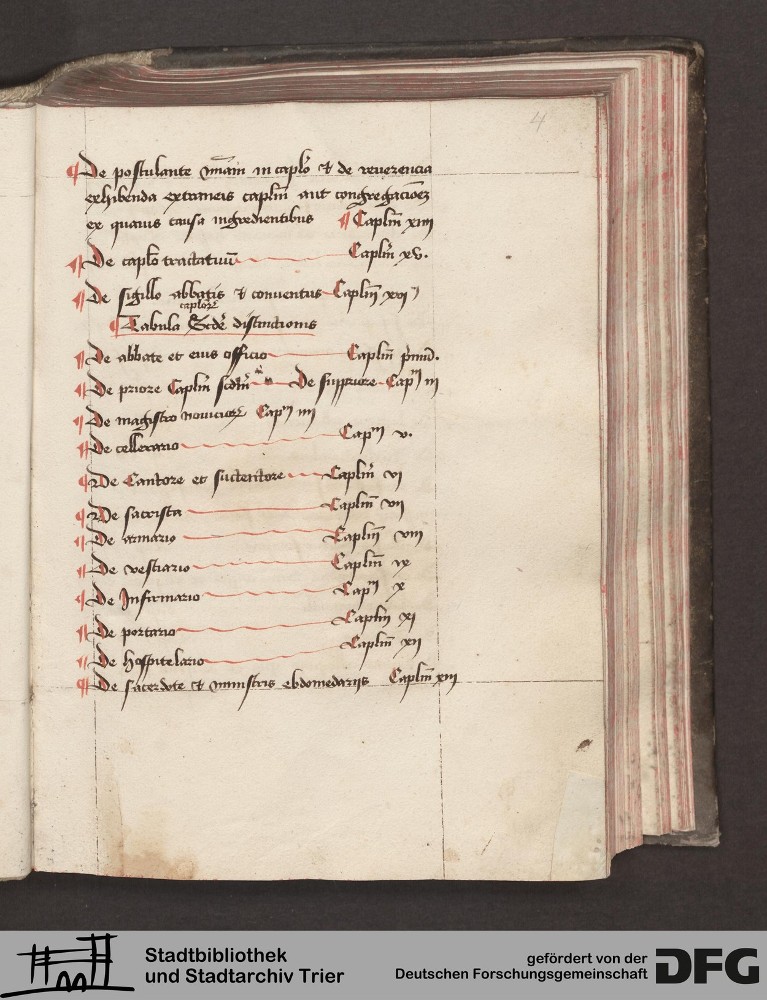 4
¶ De postulante vniām in caplo & de reuerencia
exhibenda extraneis caplm aut congregacionez
ex quauis causa ingredientibus ¶ Caplm xiiij
¶ De caplo tractatuū Caplm xv.
¶ De sigillo abbatis & conuentus Caplm xvj
caplorz
¶ Tabula Scde distinctionis
¶ De abbate et eius officio Caplm pͥmū.
¶ De priore Caplm scdm De suppriore Capm iij
¶ De magistro nouiciorz Capm iiij
¶ De cellerario Capm v.
¶ De Cantore et succentore Caplm vj
¶ De sacrista Caplm vij
¶ De armario Caplm viij
¶ De vestiario Caplm ix
¶ De Infirmario Capm x
¶ De portario Caplm xj
¶ De hospitelario Caplm xij
¶ De sacerdote & ministris ebdomedarijs Caplm xiij
Stadtbibliothek
und Stadtarchiv Trier
gefördert von der
Deutschen Forschungsgemeinschaft
DFG